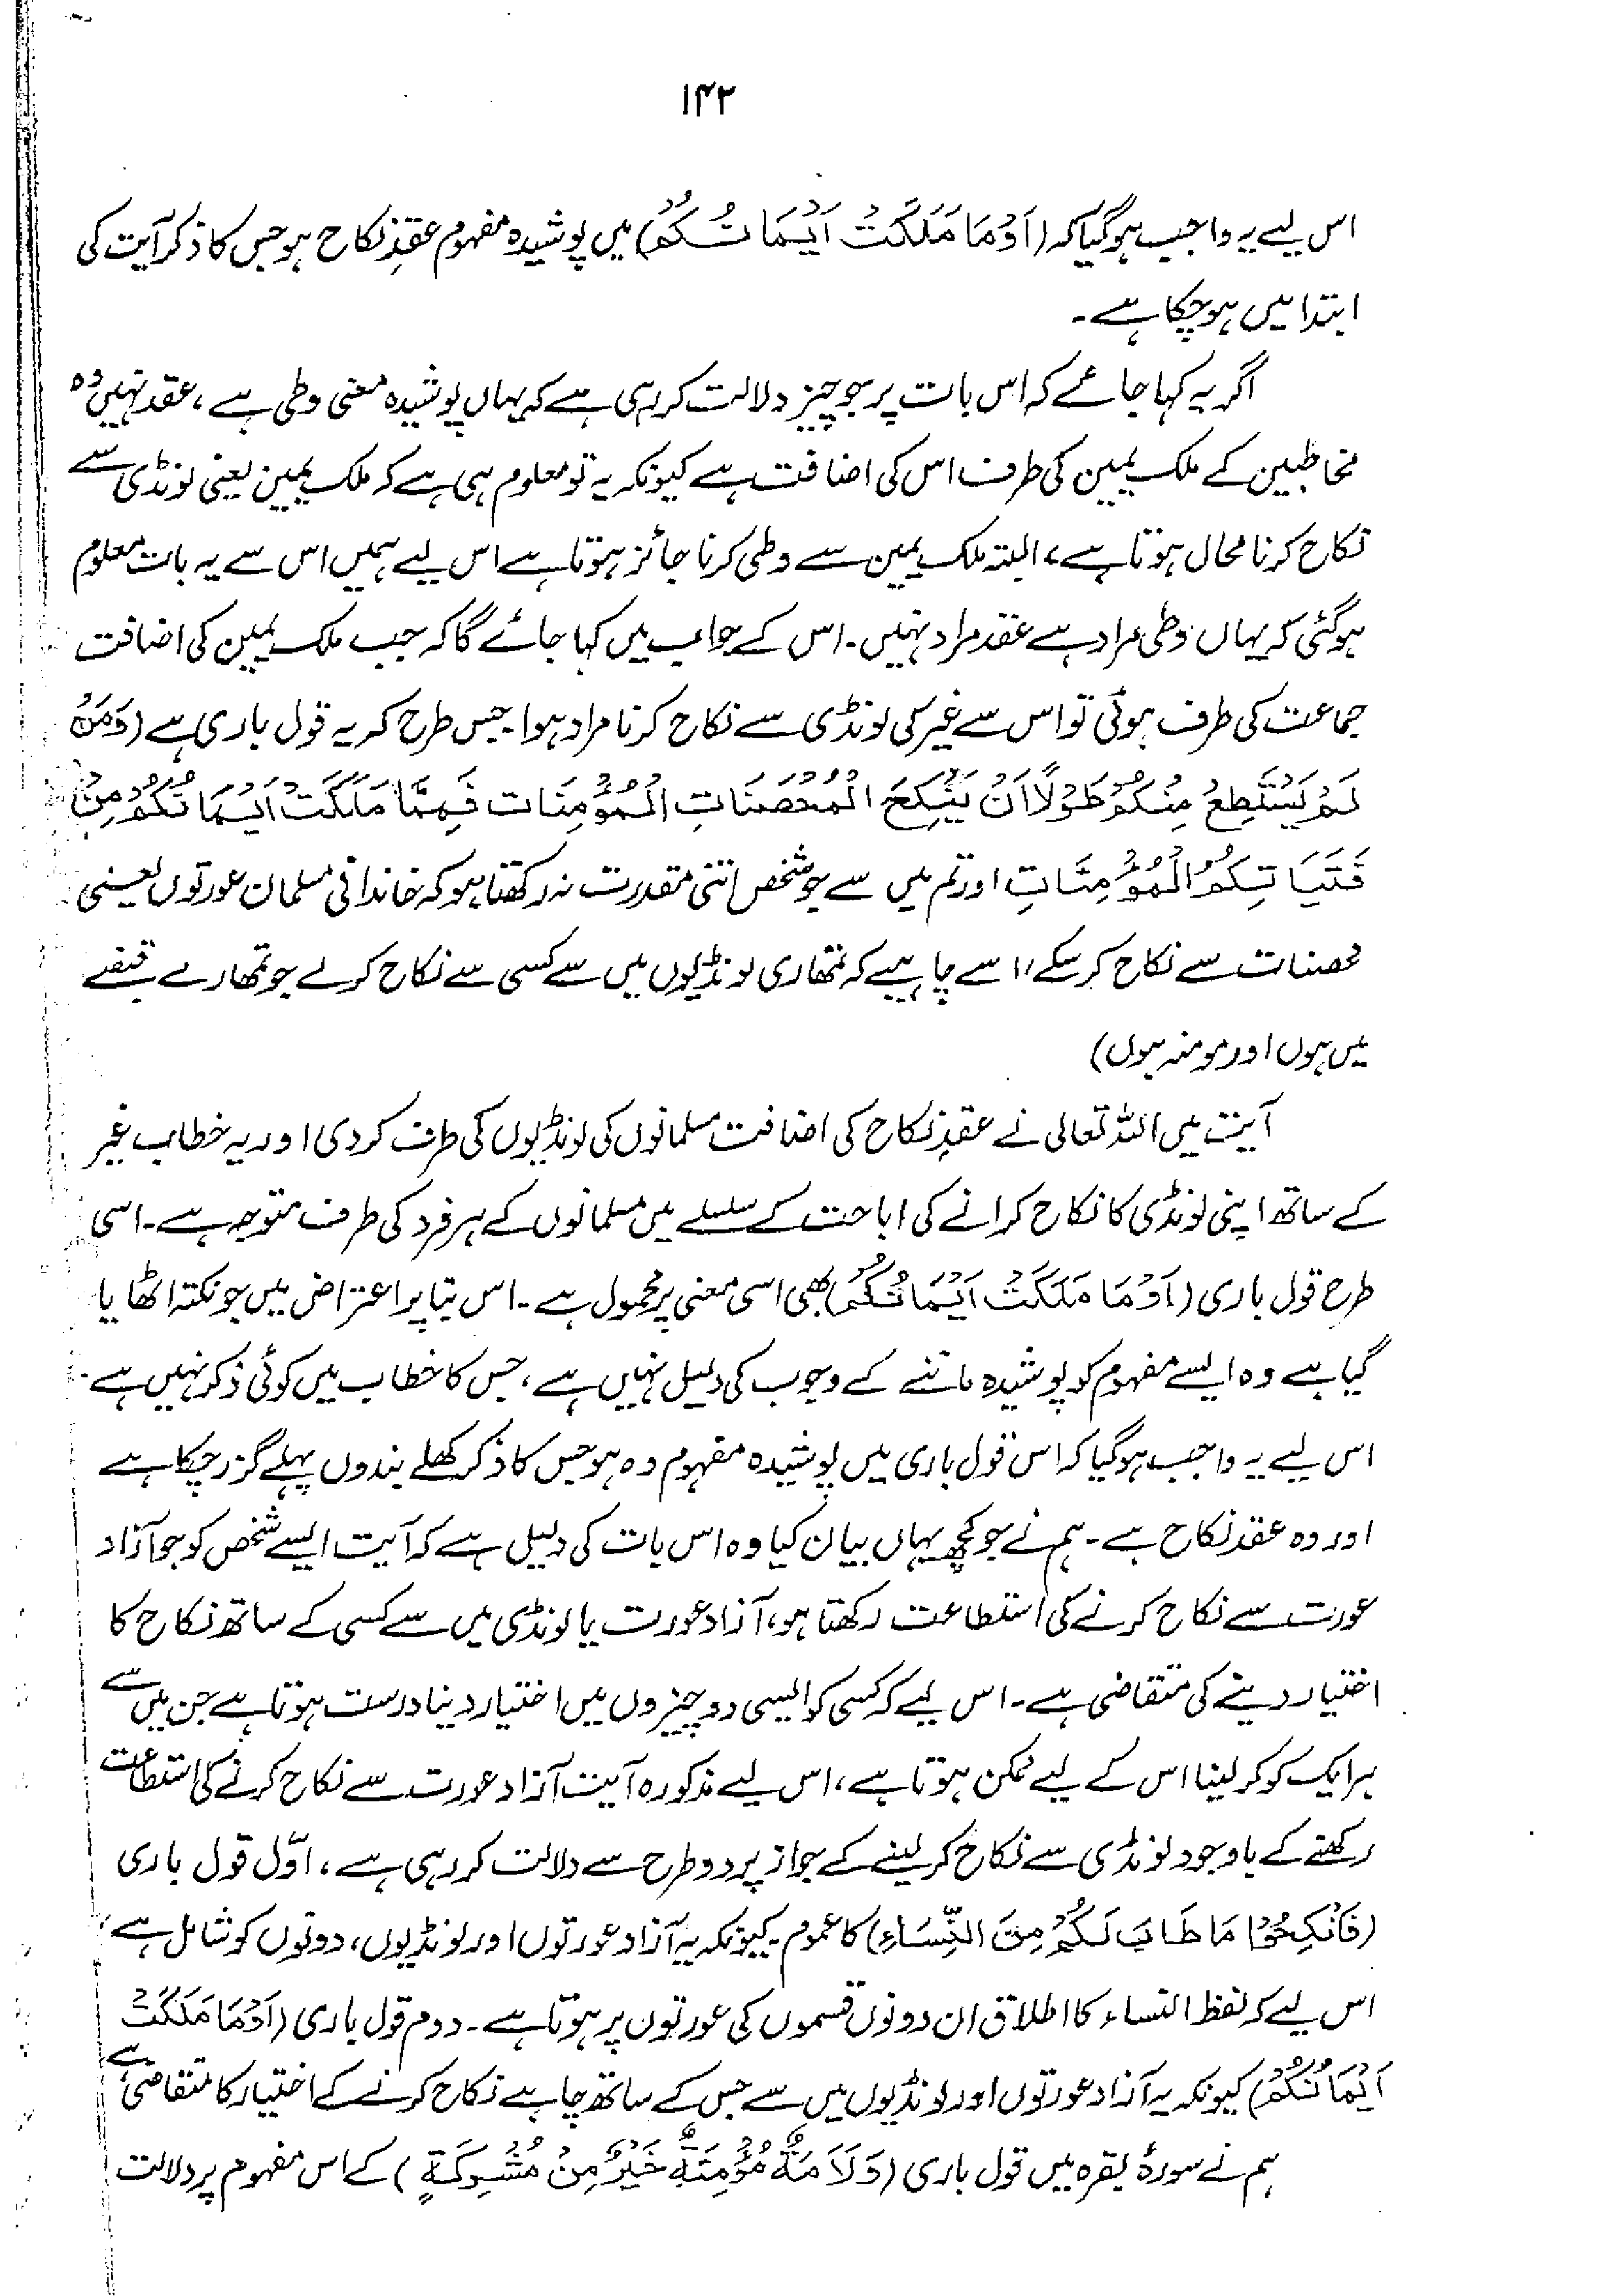 ۱۴۲
اس لیے یہ واجب ہوگیا کہ (اَوْ مَا مَلَكَتْ اَيْمَانُكُمْ) میں پوشیدہ مفہوم عقدِ نکاح ہو جس کا ذکر آیت کی
ابتدا میں ہوچکا ہے۔
اگر یہ کہا جائے کہ اس بات پر جو چیز دلالت کر رہی ہے کہ یہاں پوشیدہ معنی وطی ہے، عقد نہیں وہ
مخاطبین کے ملک یمین کی طرف اس کی اضافت ہے کیونکہ یہ تو معلوم ہی ہے کہ ملک یمین یعنی لونڈی سے
نکاح کرنا محال ہوتا ہے، البتہ ملک یمین سے وطی کرنا جائز ہوتا ہے اس لیے ہمیں اس سے یہ بات معلوم
ہوگئی کہ یہاں وطی مراد ہے عقد مراد نہیں۔ اس کے جواب میں کہا جائے گا کہ جب ملک یمین کی اضافت
جماعت کی طرف ہوئی تو اس سے غیر کی لونڈی سے نکاح کرنا مراد ہوا۔ جس طرح کہ یہ قول باری ہے (وَمَنْ
لَمْ يَسْتَطِعْ مِنْكُمْ طَوْلًا اَنْ يَنْكِحَ الْمُحْصَنَاتِ الْمُؤْمِنَات فَمِمَّا مَلَكَتْ اَيْمَانُكُمْ مِنْ
فَتَيَاتِكُمُ الْمُؤْمِنَاتِ اور تم میں سے جو شخص اتنی مقدرت نہ رکھتا ہو کہ خاندانی مسلمان عورتوں یعنی
محصنات سے نکاح کرسکے، اسے چاہیے کہ تمھاری لونڈیوں میں سے کسی سے نکاح کرلے جو تمھارے قبضے
میں ہوں اور مومنہ ہوں)
آیت میں اللہ تعالی نے عقدِ نکاح کی اضافت مسلمانوں کی لونڈیوں کی طرف کردی اور یہ خطاب غیر
کے ساتھ اپنی لونڈی کا نکاح کرانے کی اباحت کے سلسلے میں مسلمانوں کے ہر فرد کی طرف متوجہ ہے۔ اسی
طرح قول باری (اَوْ مَا مَلَكَتْ اَيْمَانُكُمْ) بھی اسی معنی پر محمول ہے۔ اس بنا پر اعتراض میں جو نکتہ اٹھایا
گیا ہے وہ ایسے مفہوم کو پوشیدہ ماننے کے وجوب کی دلیل نہیں ہے، جس کا خطاب میں کوئی ذکر نہیں ہے۔
اس لیے یہ واجب ہوگیا کہ اس قول باری میں پوشیدہ مفہوم وہ ہو جس کا ذکر کھلے بندوں پہلے گزر چکا ہے
اور وہ عقد نکاح ہے۔ ہم نے جو کچھ یہاں بیان کیا وہ اس بات کی دلیل ہے کہ آیت ایسے شخص کو جو آزاد
عورت سے نکاح کرنے کی استطاعت رکھتا ہو، آزاد عورت یا لونڈی میں سے کسی کے ساتھ نکاح کا
اختیار دینے کی متقاضی ہے۔ اس لیے کہ کسی کو ایسی دو چیزوں میں اختیار دینا درست ہوتا ہے جن میں سے
ہر ایک کو کر لینا اس کے لیے ممکن ہوتا ہے، اس لیے مذکورہ آیت آزاد عورت سے نکاح کرنے کی استطاعت
رکھنے کے باوجود لونڈی سے نکاح کر لینے کے جواز پر دو طرح سے دلالت کر رہی ہے، اوّل قول باری
(فَانْكِحُوْا مَا طَابَ لَكُمْ مِنَ النِّسَاءِ) کا عموم۔ کیونکہ یہ آزاد عورتوں اور لونڈیوں، دونوں کو شامل ہے
اس لیے کہ لفظ النساء کا اطلاق ان دونوں قسموں کی عورتوں پر ہوتا ہے۔ دوم قول باری (اَوْ مَا مَلَكَتْ
اَيْمَانُكُمْ) کیونکہ یہ آزاد عورتوں اور لونڈیوں میں سے جس کے ساتھ چاہے نکاح کرنے کے اختیار کا متقاضی ہے
ہم نے سورۂ بقرہ میں قول باری (وَلَاَمَةٌ مُؤْمِنَةٌ خَيْرٌ مِنْ مُشْرِكَةٍ) کے اس مفہوم پر دلالت